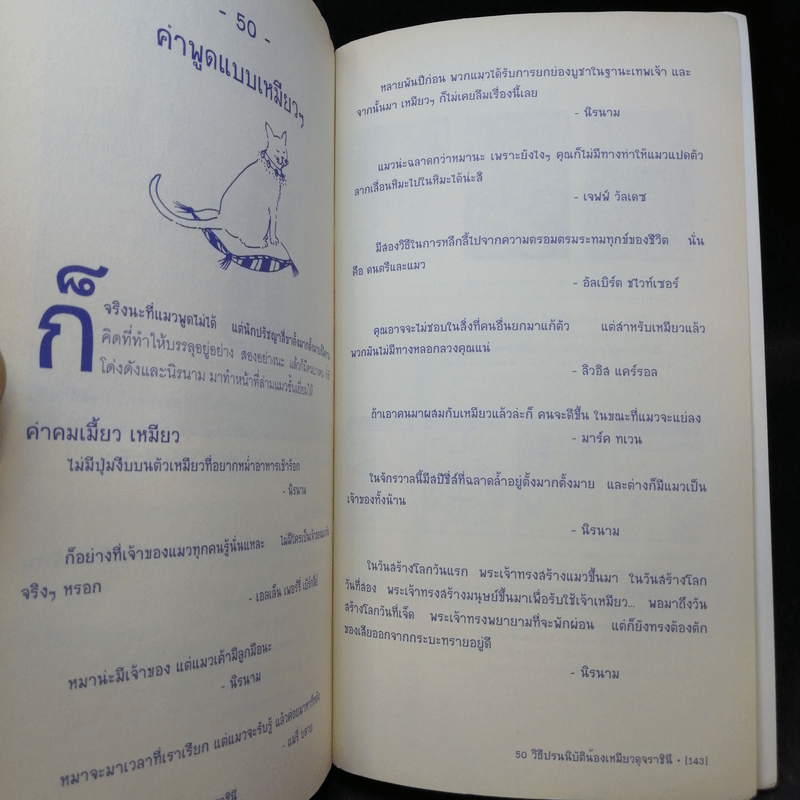 - 50 -
คำพูดแบบเหมียวๆ
ก็จริงนะที่แมวพูดไม่ได้ แต่นักปรัชญาสี่ขา
คิดที่ทำให้บรรลุอยู่อย่าง สองอย่างนะ แล้วก็มี
โด่งดังและนิรนาม มาทำหน้าที่ล่ามแมวชั้นเยี่ยมให้
คำคมเมี้ยว เหมียว
ไม่มีปุ่มงีบบนตัวเหมียวที่อยากหม่ำอาหารเช้าร้อก
- นิรนาม
ก็อย่างที่เจ้าของแมวทุกคนรู้นั่นแหละ ไม่มีใครเป็นเจ้าของแมว
จริงๆ หรอก
- เอลเล็น เพอร์รี่
หมาน่ะมีเจ้าของ แต่แมวเค้ามีลูกมือนะ
- นิรนาม
หมาจะมาเวลาที่เราเรียก แต่แมวจะรับรู้ แล้วค่อยมาหาทีหลัง
- แมรี่ บลาย
หลายพันปีก่อน พวกแมวได้รับการยกย่องบูชาในฐานะเทพเจ้า และ
จากนั้นมา เหมียวๆ ก็ไม่เคยลืมเรื่องนี้เลย
- นิรนาม
แมวน่ะฉลาดกว่าหมานะ เพราะยังไงๆ คุณก็ไม่มีทางทำให้แมวแปดตัว
ลากเลื่อนหิมะไปในหิมะได้น่ะสิ
- เจฟฟ์ วัลเดซ
มีสองวิธีในการหลีกลี้ไปจากความตรอมตรมระทมทุกข์ของชีวิต นั่น
คือ ดนตรีและแมว
- อัลเบิร์ต ชไวท์เซอร์
คุณอาจจะไม่ชอบในสิ่งที่คนอื่นยกมาแก้ตัว แต่สำหรับเหมียวแล้ว
พวกมันไม่มีทางหลอกลวงคุณแน่
- ลิวอิส แคร์รอล
ถ้าเอาคนมาผสมกับเหมียวแล้วล่ะก็ คนจะดีขึ้น ในขณะที่แมวจะแย่ลง
- มาร์ค ทเวน
ในจักรวาลนี้มีสปีชี่ส์ที่ฉลาดล้ำอยู่ตั้งมากตั้งมาย และต่างก็มีแมวเป็น
เจ้าของทั้งน้าน
- นิรนาม
ในวันสร้างโลกวันแรก พระเจ้าทรงสร้างแมวขึ้นมา ในวันสร้างโลก
วันที่สอง พระเจ้าทรงสร้างมนุษย์ขึ้นมาเพื่อรับใช้เจ้าเหมียว... พอมาถึงวัน
สร้างโลกวันที่เจ็ด พระเจ้าทรงพยายามที่จะพักผ่อน แต่ก็ยังทรงต้องตัก
ของเสียออกจากกระบะทรายอยู่ดี
- นิรนาม
50 วิธีปรนนิบัติน้องเหมียวดุจราชินี • [143]